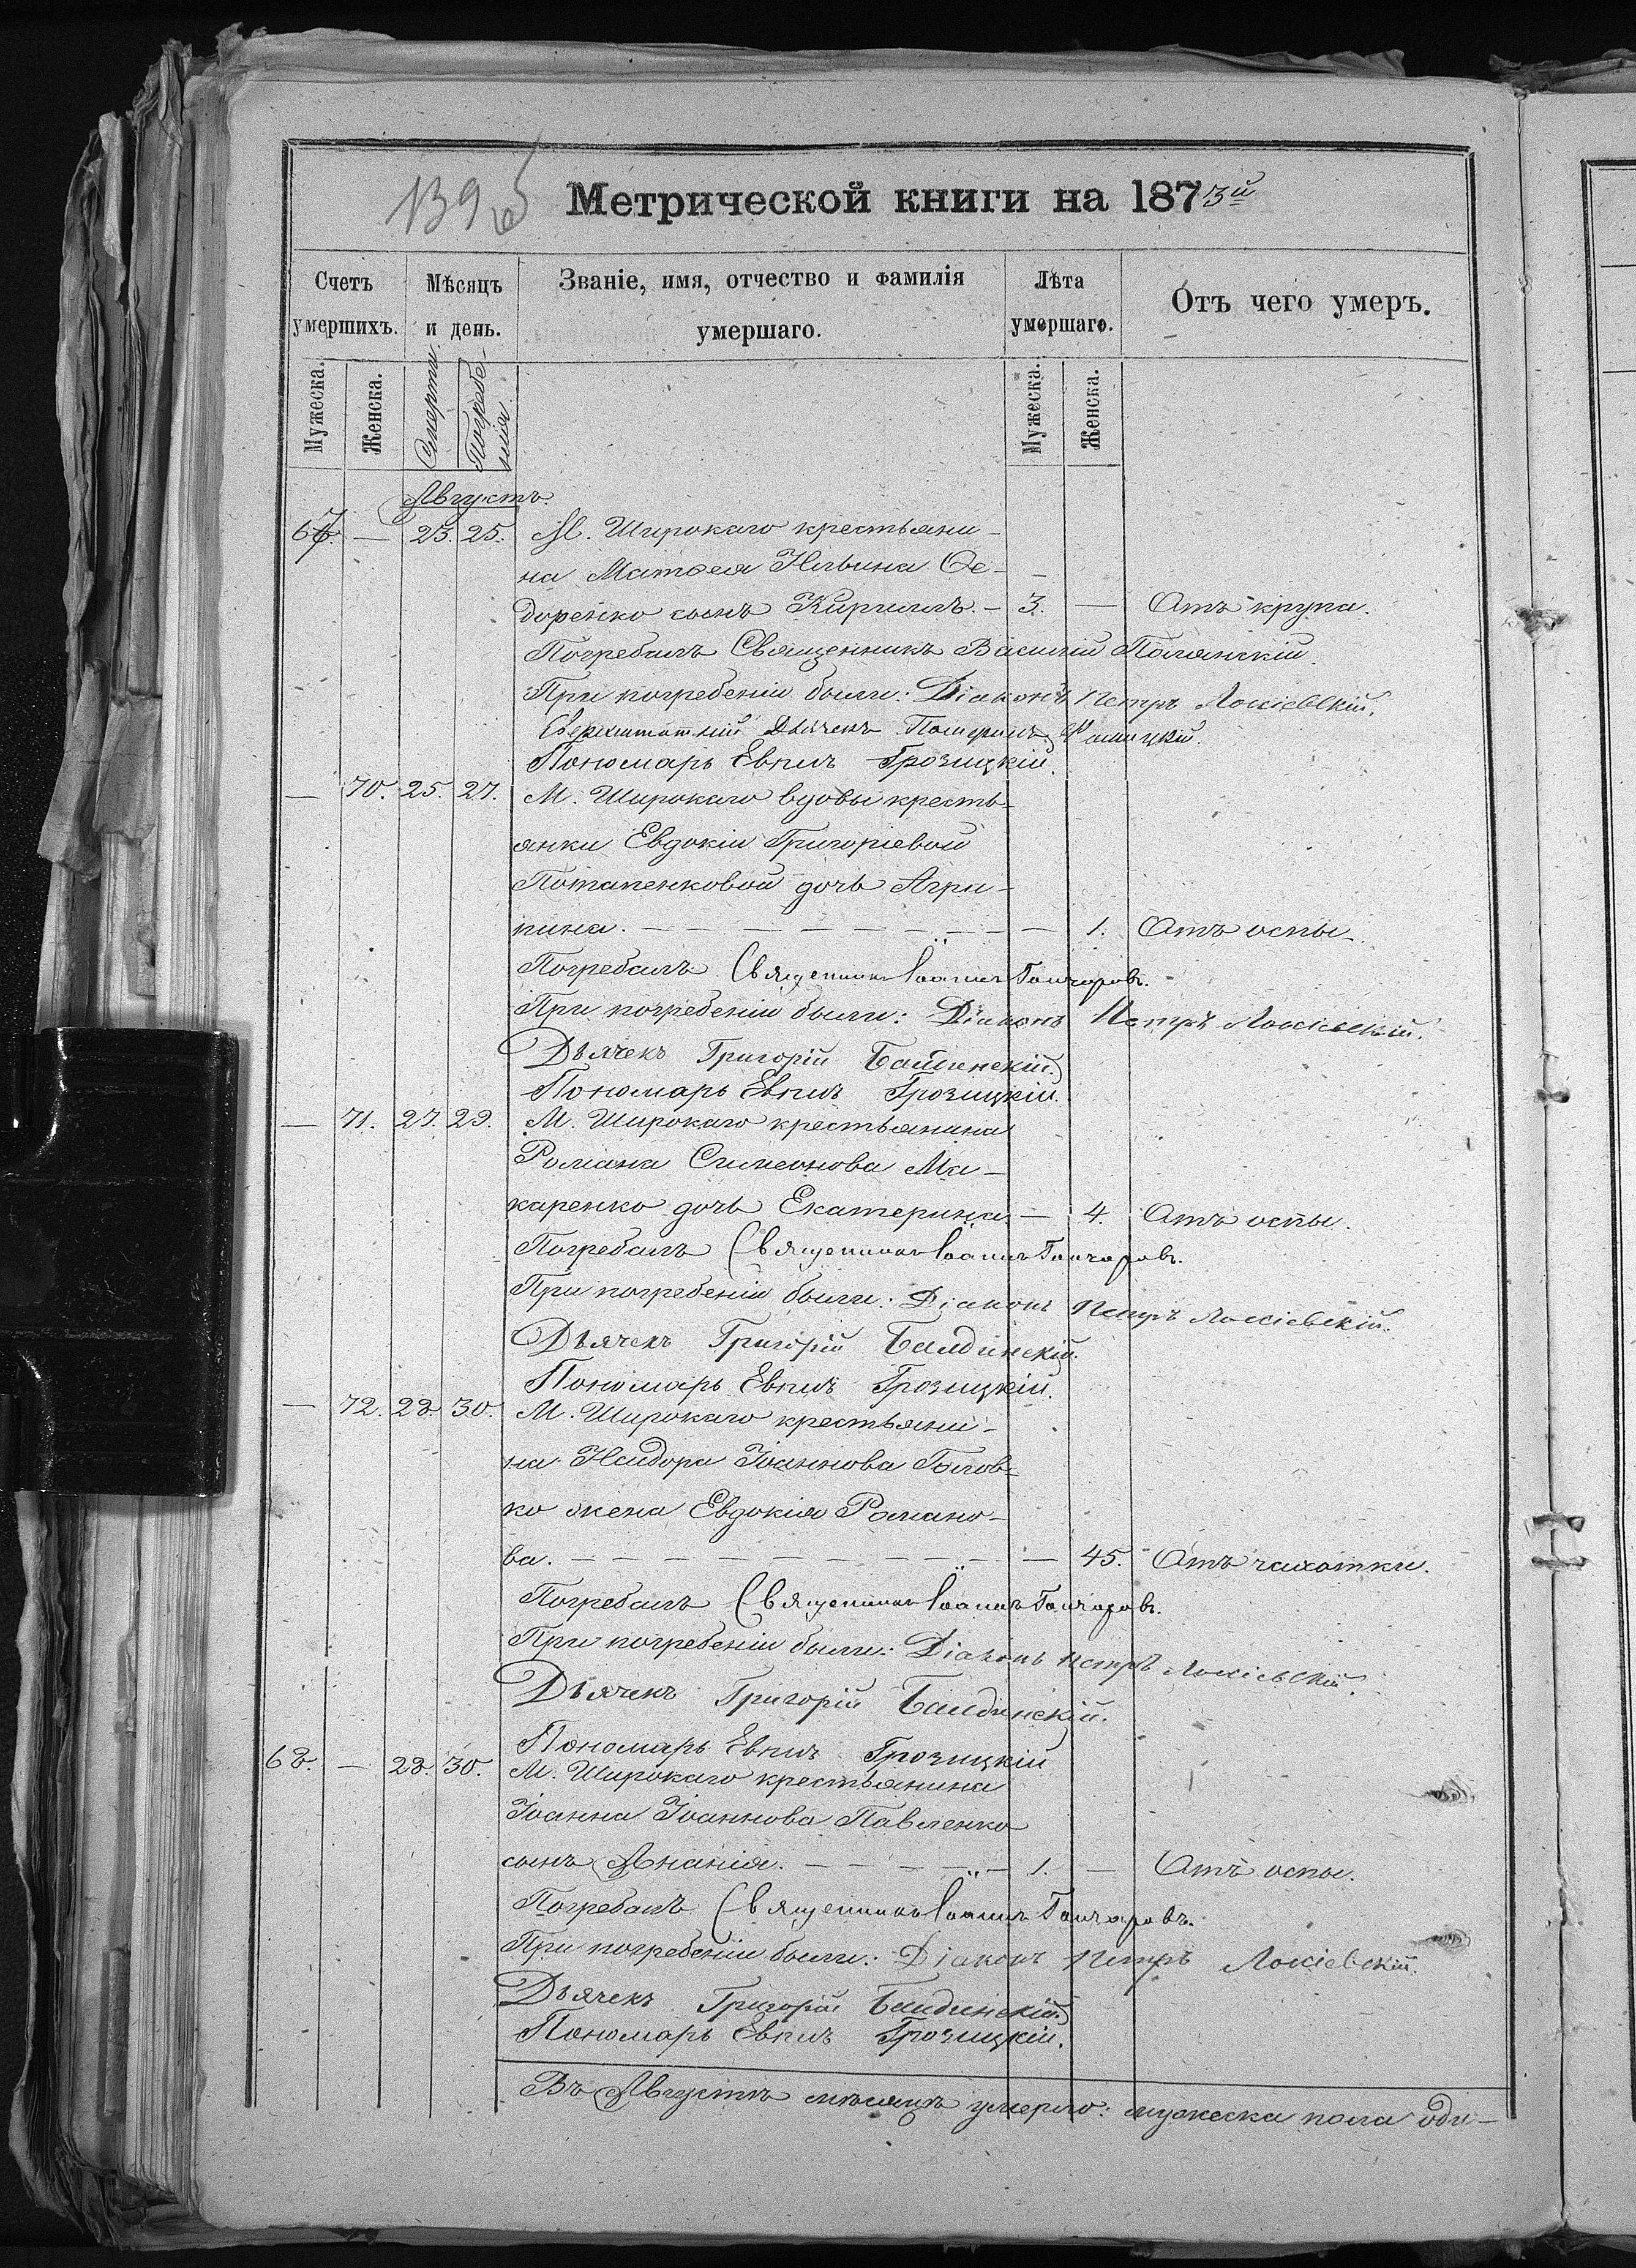 139 об
Метрической книги на 1873й
Счетъ умершихъ.
Мѣсяцъ и день.
Званіе, имя, отчество и фамилія умершаго.
Лѣта умершаго.
Отъ чего умеръ.
Мужеска.
Женска.
Смерти.
Погребенія.
Мужеска.
Женска.
Августъ.
67. — 23. 25. М. Широкаго крестьяни-
на Матѳея Ѳе-
доренко сынъ Кириллъ. — 3. — Отъ крупа.
Погребалъ Священникъ Василій
При погребеніи были: Діаконъ Петръ
Сверхштатный Дьячекъ
Пономарь Евплъ Грозицкій.
— 70. 25. 27. М. Широкаго вдовы кресть-
янки Евдокіи Григоріевой
Потапенковой дочь Агри-
пина. — 1. Отъ оспы.
Погребалъ Священникъ Іоаннъ Гончаровъ.
При погребеніи были: Діаконъ Петръ
Дьячекъ Григорій
Пономарь Евплъ Грозицкій.
— 71. 27. 29. М. Широкаго крестьянина
Романа Симеонова Ма-
каренко дочь Екатерина. — 4. Отъ оспы.
Погребалъ Священникъ Іоаннъ Гончаровъ.
При погребеніи были: Діаконъ Петръ
Дьячекъ Григорій
Пономарь Евплъ Грозицкій.
— 72. 28. 30. М. Широкаго крестьяни-
на Исидора Іоаннова Голов-
ко жена Евдокія Романо-
ва. — 45. Отъ чахотки.
Погребалъ Священникъ Іоаннъ Гончаровъ.
При погребеніи были: Діаконъ Петръ
Дьячекъ Григорій
Пономарь Евплъ Грозицкій
68. — 28. 30. М. Широкаго крестьянина
Іоанна Іоаннова Павленко
сынъ Ананія. — 1. — Отъ оспы.
Погребалъ Священникъ Іоаннъ Гончаровъ.
При погребеніи были: Діаконъ Петръ
Дьячекъ Григорій
Пономарь Евплъ Грозицкій.
Въ Августѣ мѣсяцѣ умерло: мужеска пола оди-